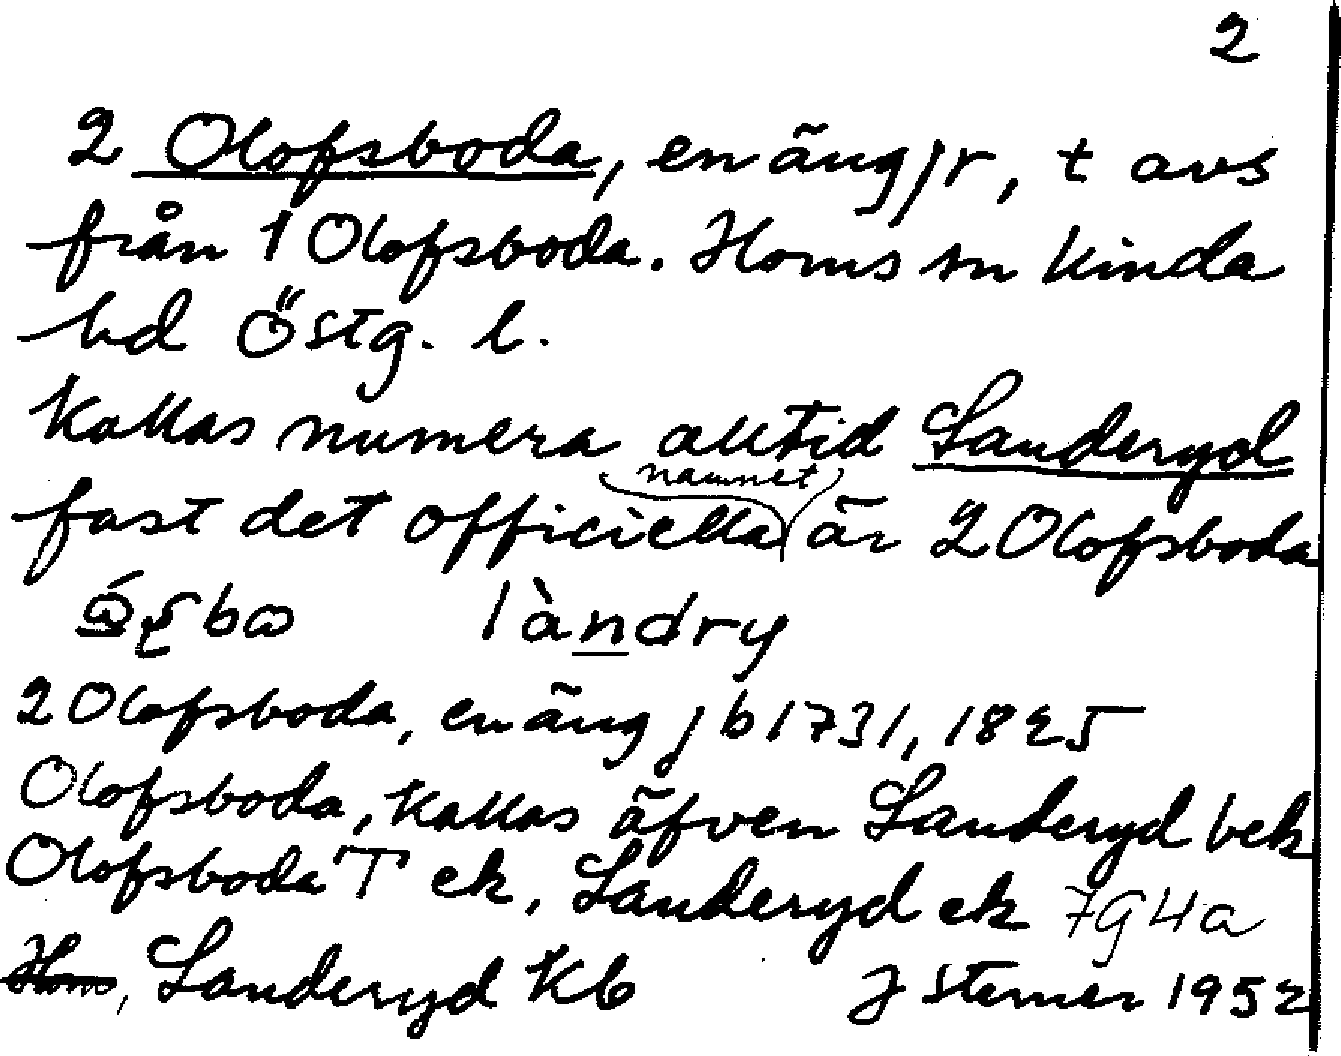 2
2 Olofsboda, en äng jr, t avs
från 1 Olofsboda. Horns sn Kinda
hd Östg. l.
Kallas numera alltid Landeryd
namnet
fast det officiella är 2 Olofsboda
làndry
2 Olofsboda, en äng jb 1731, 1825
Olofsboda, kallas äfven Landeryd bek
Olofsboda T ek, Landeryd ek 7g4a
Landeryd Kb J Sterner 1952